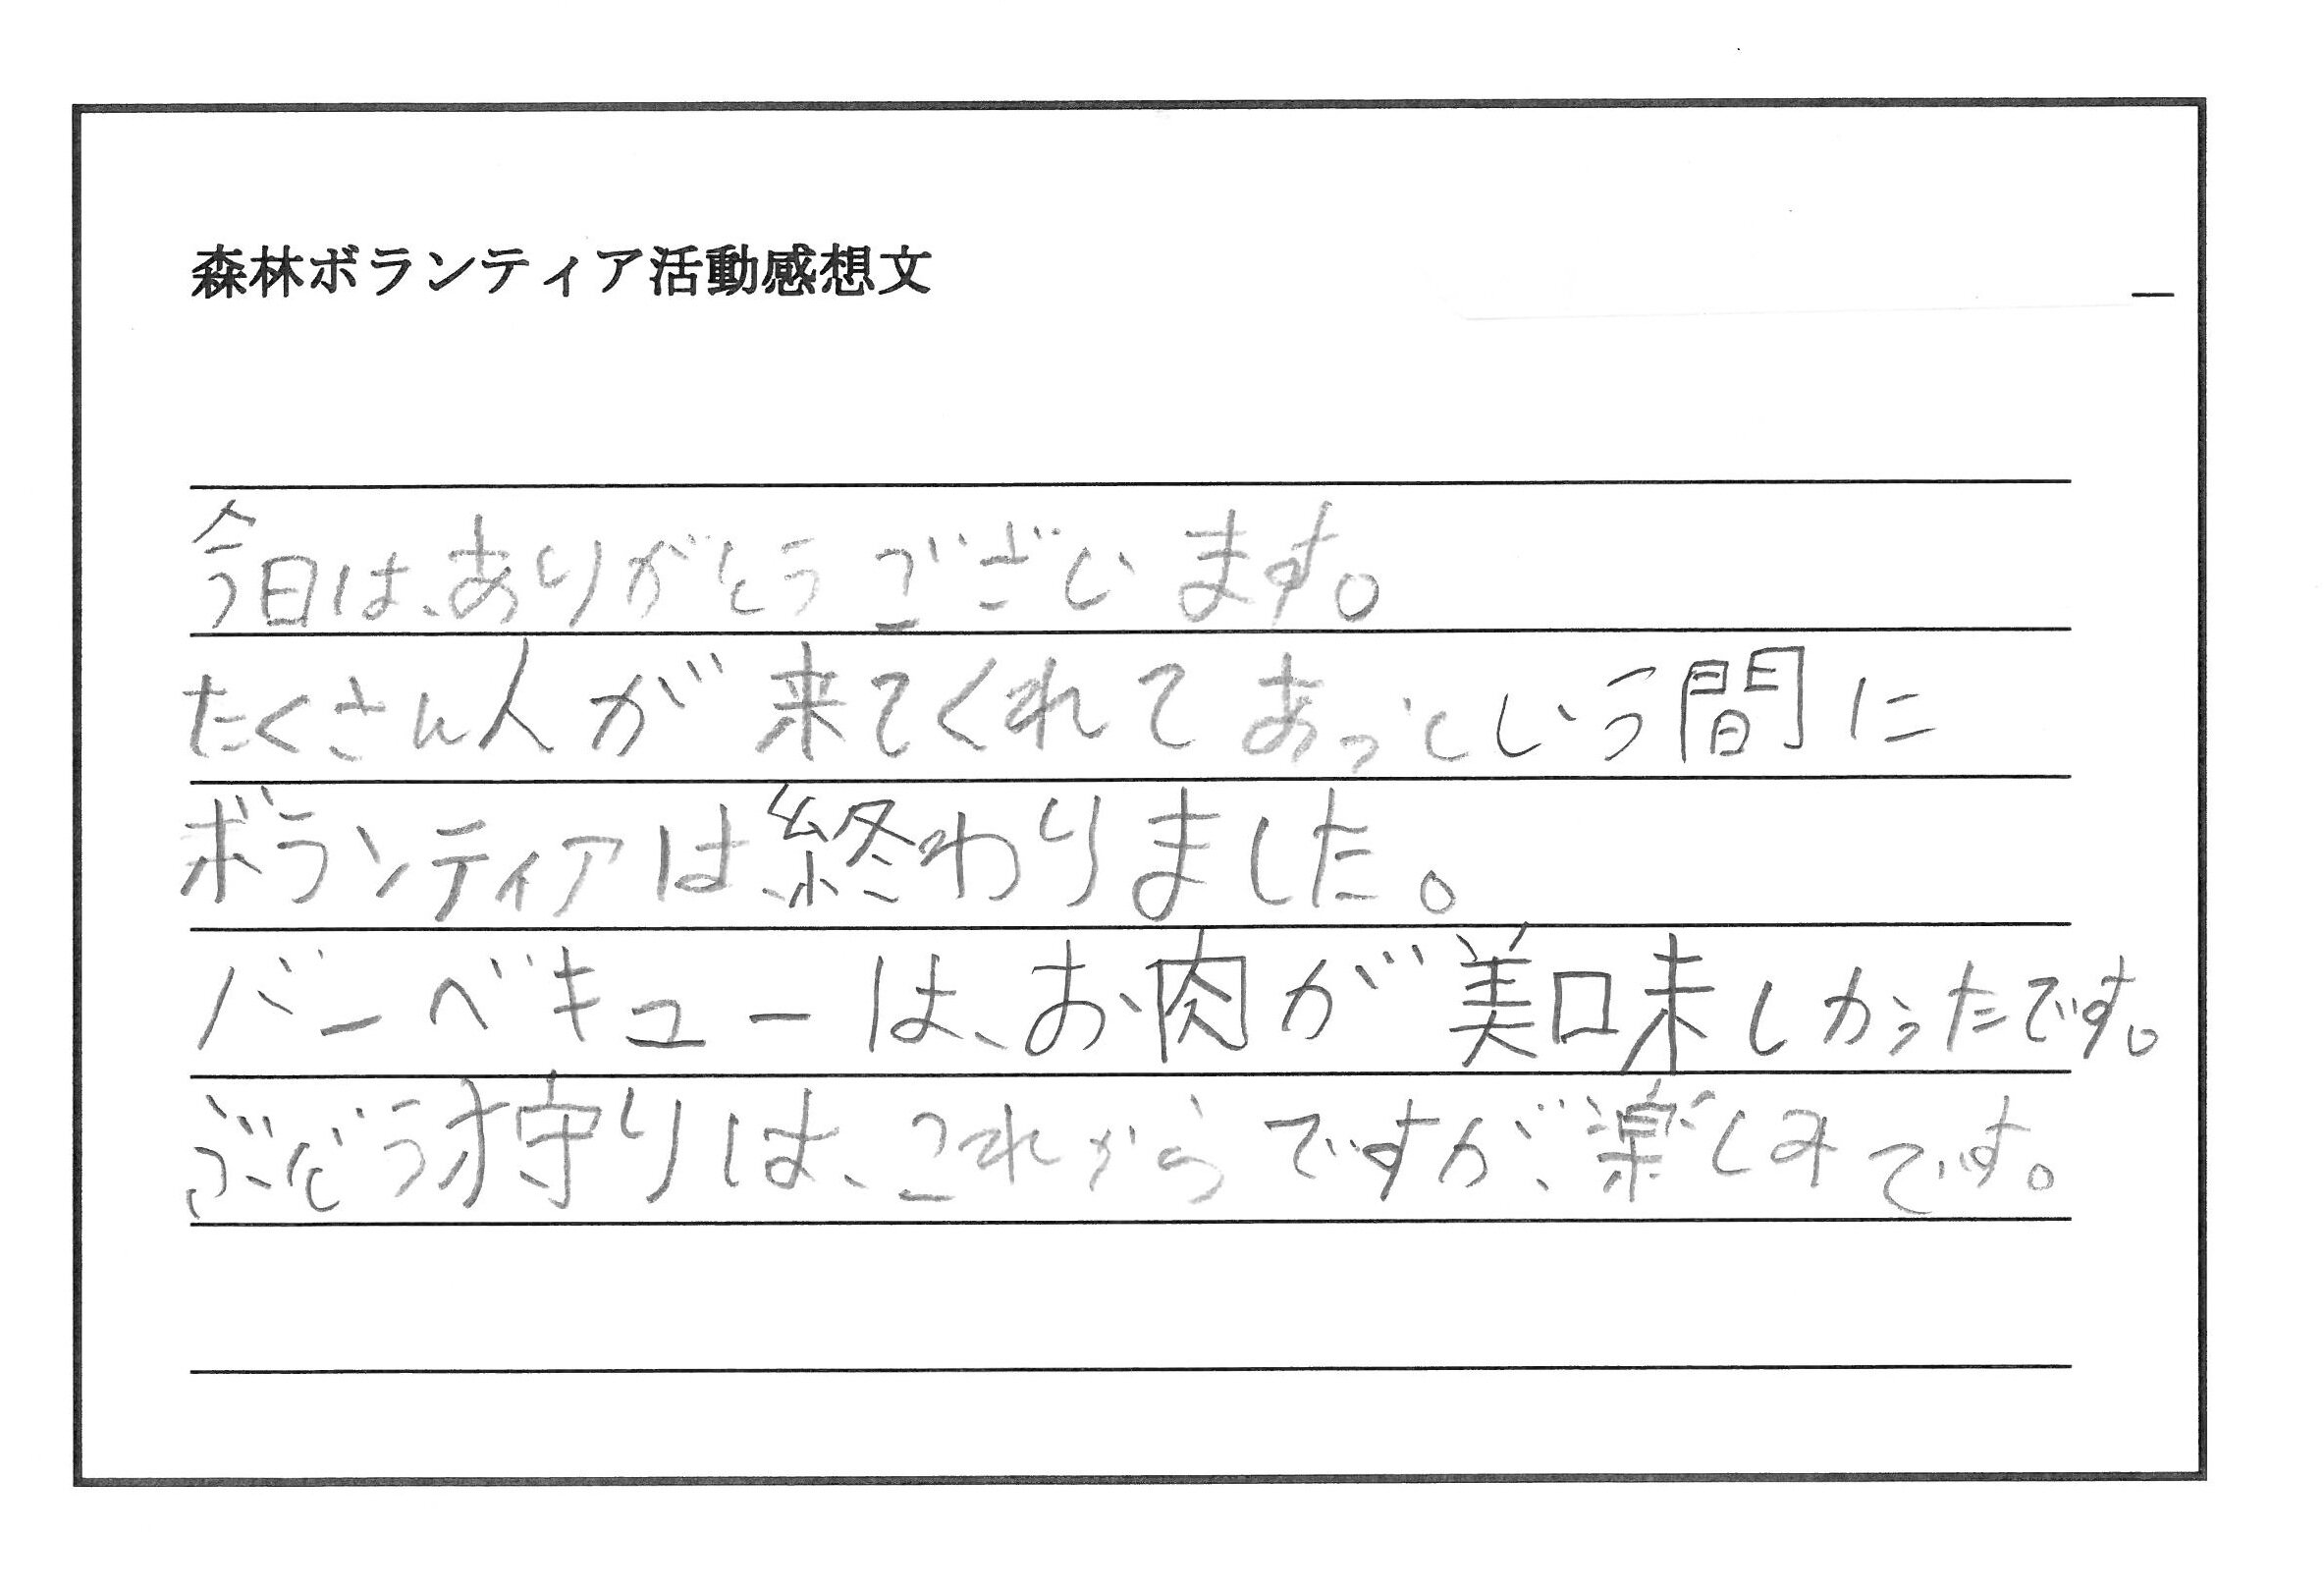 森林ボランティア活動感想文
今日は、ありがとうございます。
たくさん人が来てくれてあっという間に
ボランティアは、終わりました。
バーベキューは、お肉が美味しかったです。
ぶどう狩りは、これからですが、楽しみです。